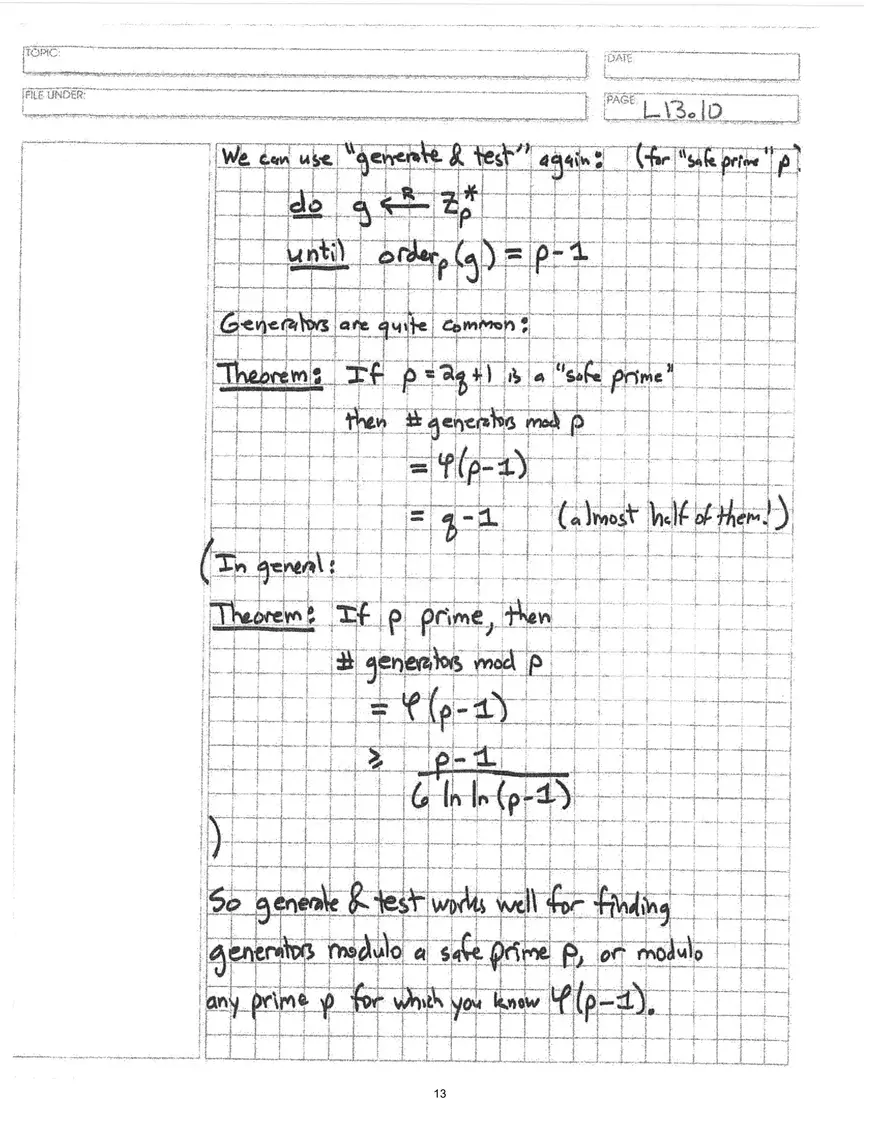 TOPIC:
DATE
FILE UNDER:
PAGE L13.10
We can use "generate & test" again: (for "safe prime" p)
do g ←R Z_p^*
until order_p(g) = p-1
Generators are quite common:
Theorem: If p = 2q+1 is a "safe prime"
then # generators mod p
= φ(p-1)
= q-1 (almost half of them!)
(In general:
Theorem: If p prime, then
# generators mod p
= φ(p-1)
≥ p-1
6 ln ln (p-1)
)
So generate & test works well for finding
generators modulo a safe prime p, or modulo
any prime p for which you know φ(p-1).
13